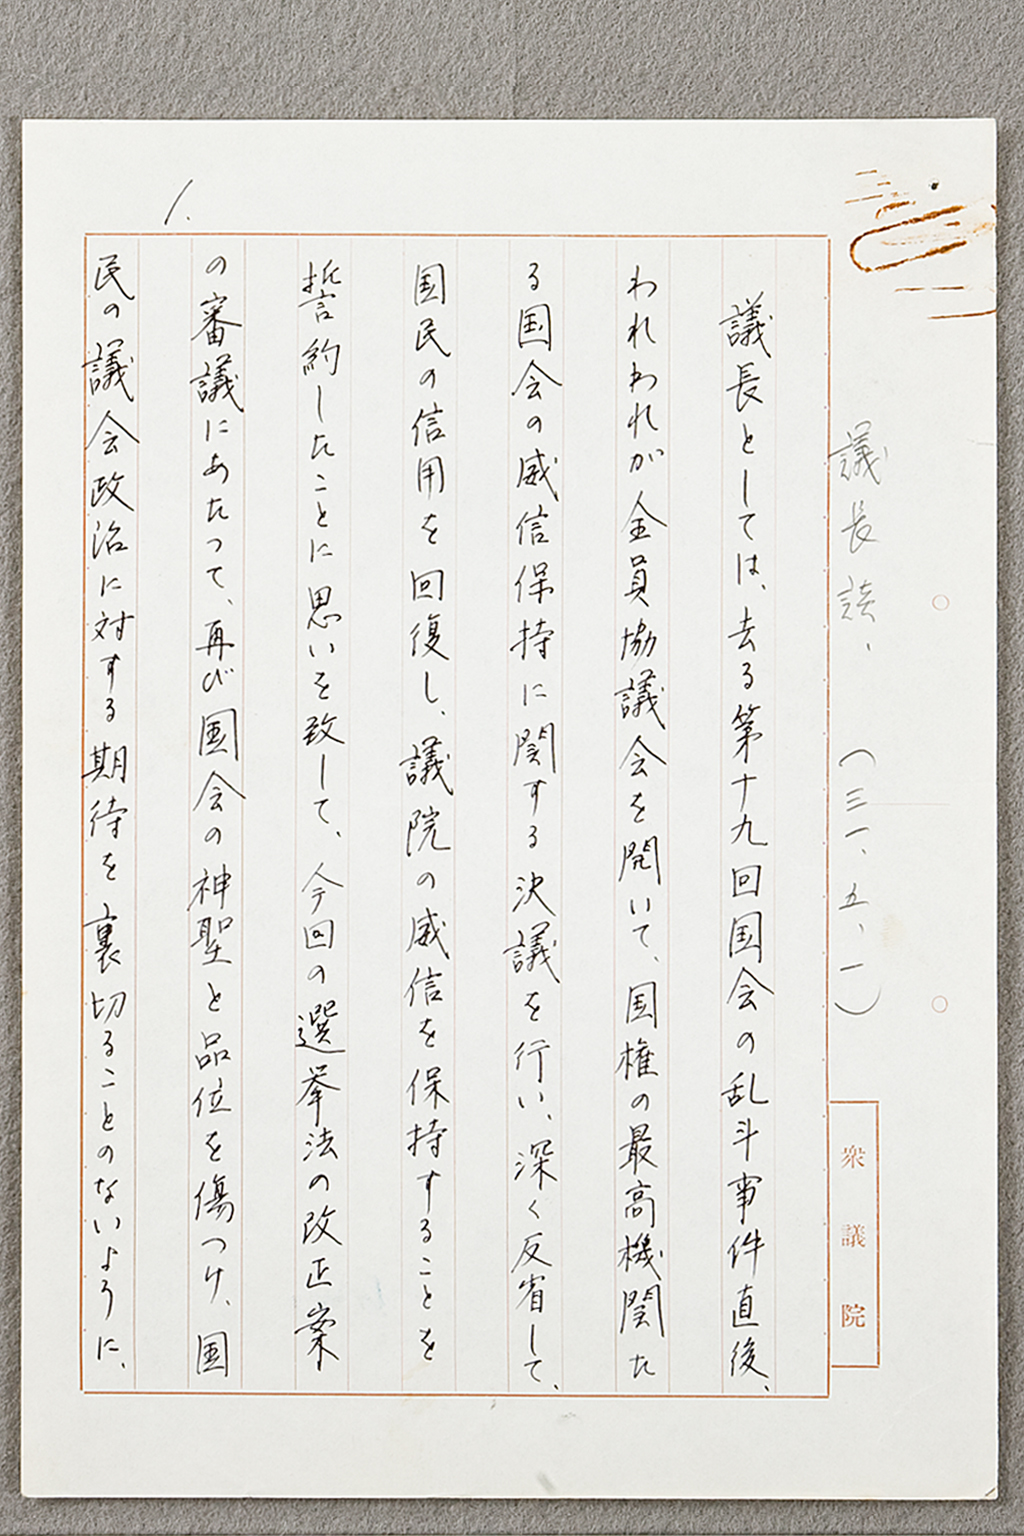 議長談、（三一、五、一）
衆議院
議長としては、去る第十九回国会の乱斗事件直後、
われわれが全員協議会を開いて、国権の最高機関た
る国会の威信保持に関する決議を行い、深く反省して、
国民の信用を回復し、議院の威信を保持することを
誓約したことに思いを致して、今回の選挙法の改正案
の審議にあたって、再び国会の神聖と品位を傷つけ、国
民の議会政治に対する期待を裏切ることのないように、
1.